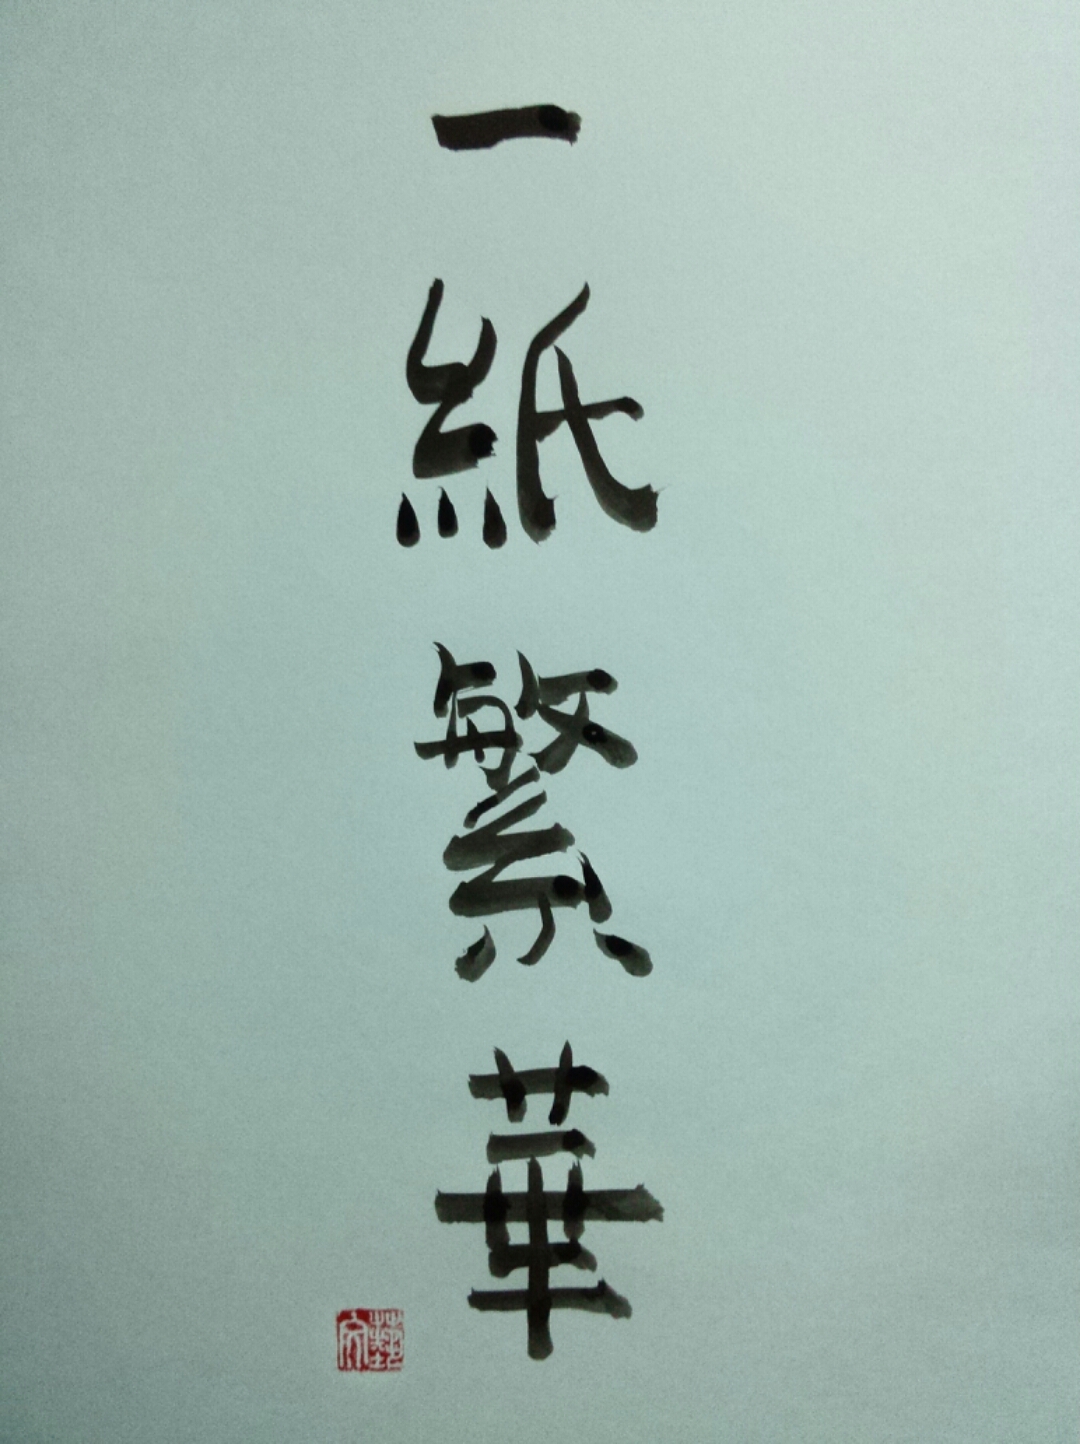 一紙繁華